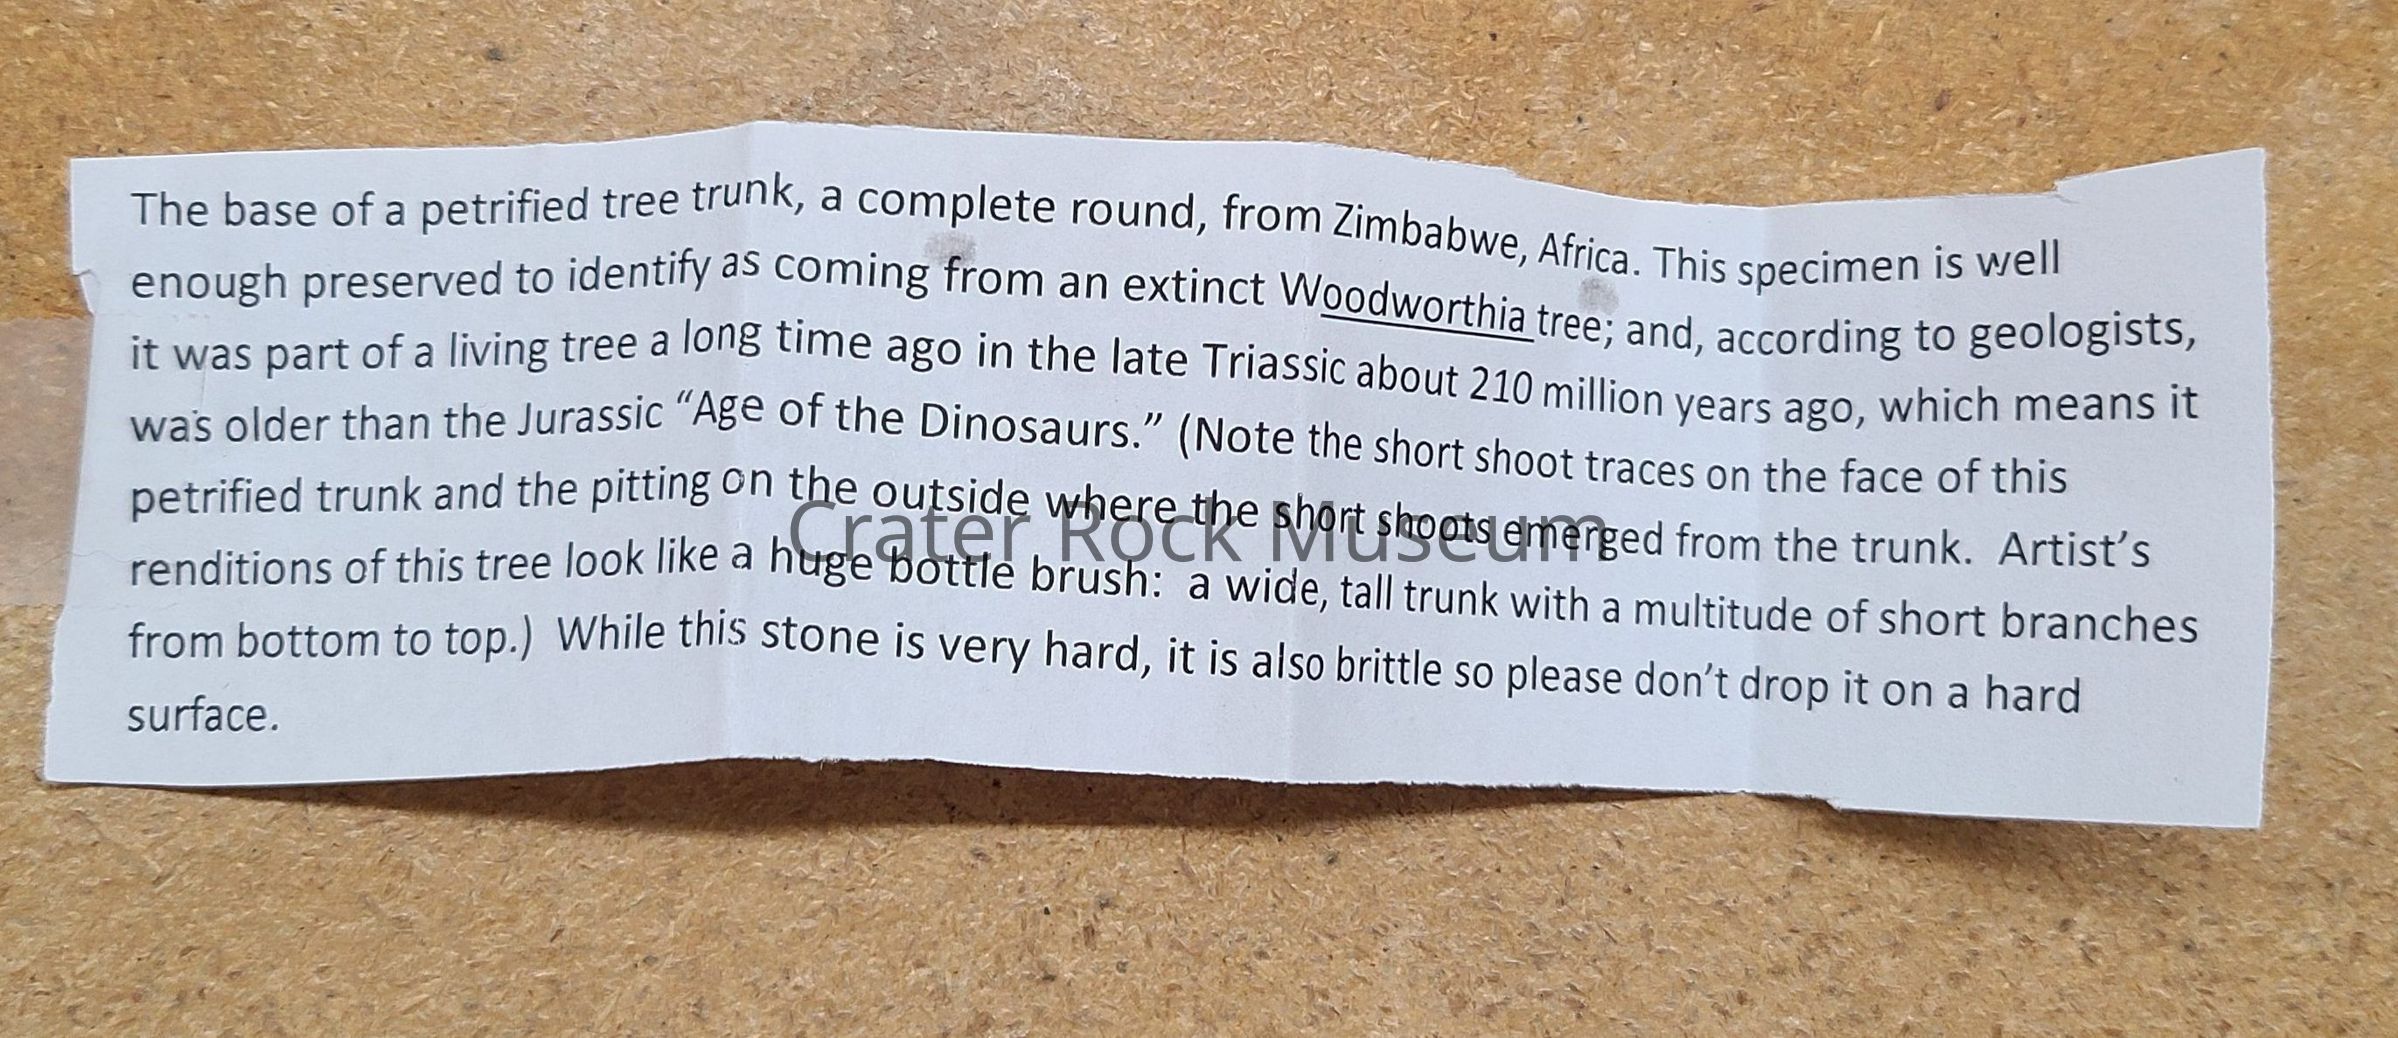 The base of a petrified tree trunk, a complete round, from Zimbabwe, Africa. This specimen is well
enough preserved to identify as coming from an extinct Woodworthia tree; and, according to geologists,
it was part of a living tree a long time ago in the late Triassic about 210 million years ago, which means it
was older than the Jurassic “Age of the Dinosaurs.” (Note the short shoot traces on the face of this
petrified trunk and the pitting on the outside where the short shoots emerged from the trunk.  Artist’s
renditions of this tree look like a huge bottle brush:  a wide, tall trunk with a multitude of short branches
from bottom to top.)  While this stone is very hard, it is also brittle so please don’t drop it on a hard
surface.
Crater Rock Museum